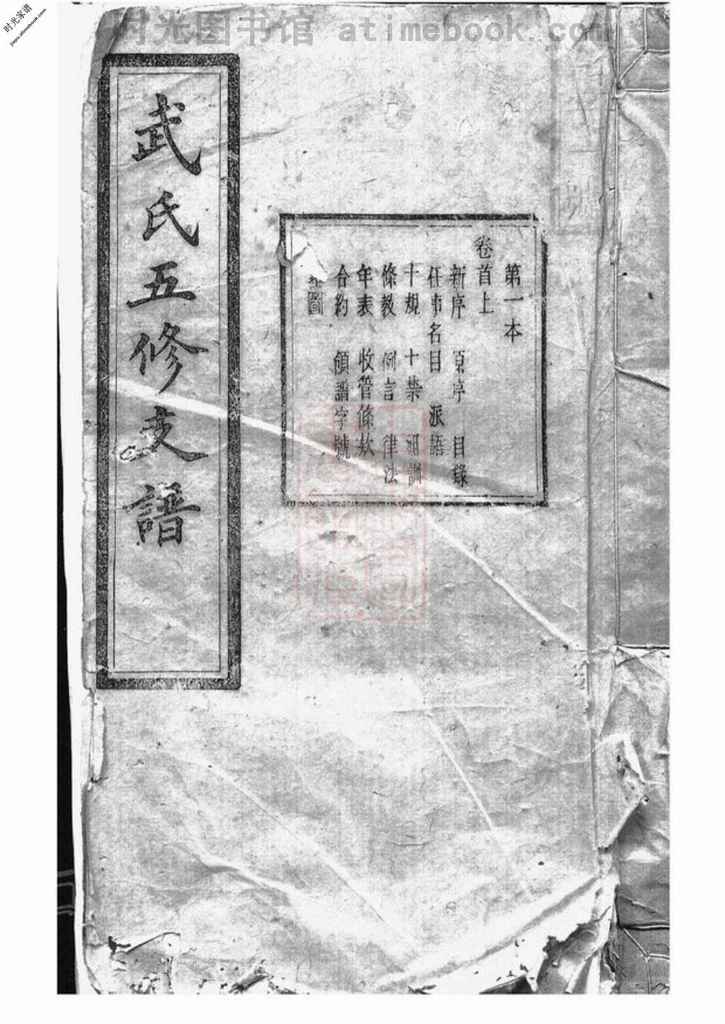 时光图书馆 atimebook.com
时光家谱
武氏五修支譜
第一本
卷首上
新序 原序 目錄
任事名目 派語
十規 十禁 祖訓
條教 例言 律法
年表 收管條欵
合約 領譜字號
圖